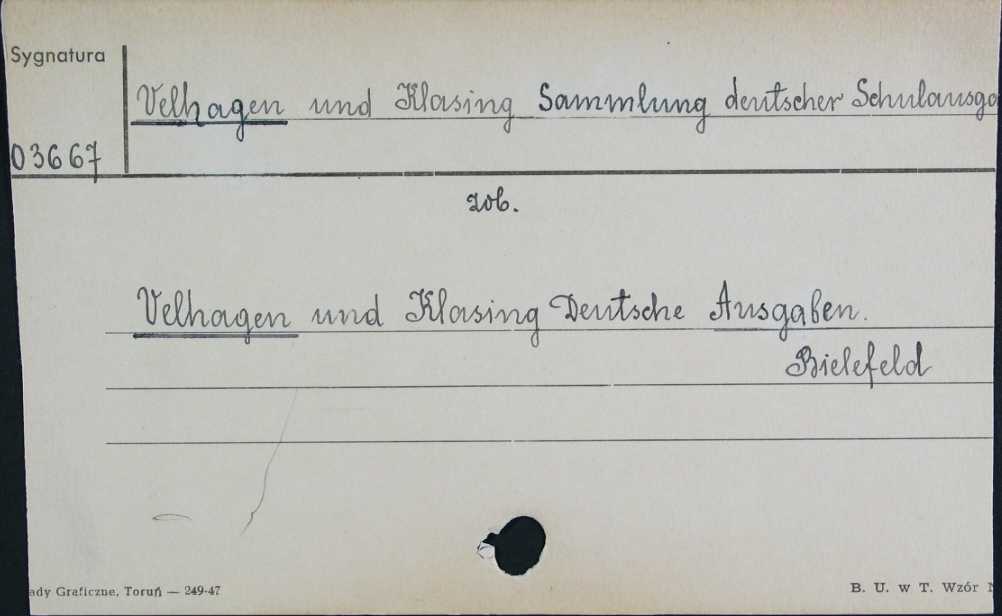 Sygnatura
Velhagen und Klasing Sammlung deutscher Schulausga
03667
zob.
Velhagen und Klasing Deutsche Ausgaben.
Bielefeld
ady Graficzne, Toruń — 249-47
B. U. w T. Wzór N